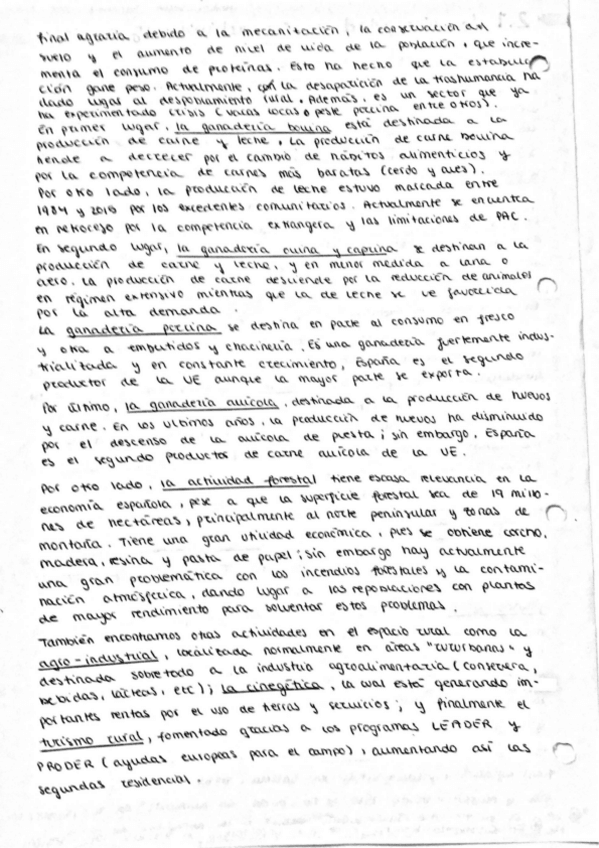 final agraria debido a la mecanización, la conservación del
suelo y el aumento de nivel de vida de la población, que incre-
menta el consumo de proteínas. Esto ha hecho que la estabula-
ción gane peso. Actualmente, con la desaparición de la trashumancia ha
dado lugar al despoblamiento rural. Además, es un sector que ya
ha experimentado crisis (vacas locas o peste porcina entre otros).
En primer lugar, la ganadería bovina está destinada a la
producción de carne y leche. La producción de carne bovina
tiende a decrecer por el cambio de hábitos alimenticios y
por la competencia de carnes más baratas (cerdo y aves).
Por otro lado, la producción de leche estuvo marcada entre
1984 y 2015 por los excedentes comunitarios. Actualmente se encuentra
en retroceso por la competencia extrangera y las limitaciones de PAC.
En segundo lugar, la ganadería ovina y caprina se destinan a la
producción de carne y leche, y en menor medida a lana o
cuero. La producción de carne desciende por la reducción de animales
en régimen extensivo mientras que la de leche se ve favorecida
por la alta demanda.
La ganadería porcina se destina en parte al consumo en fresco
y otra a embutidos y chacinería. Es una ganadería fuertemente indus-
trializada y en constante crecimiento, España es el segundo
productor de la UE aunque la mayor parte se exporta.
Por último, la ganadería avícola, destinada a la producción de huevos
y carne. En los últimos años, la producción de huevos ha disminuido
por el descenso de la avícola de puesta; sin embargo, España
es el segundo productor de carne avícola de la UE.
Por otro lado, la actividad forestal tiene escasa relevancia en la
economía española, pese a que la superficie forestal sea de 19 millo-
nes de hectáreas, principalmente al norte peninsular y zonas de
montaña. Tiene una gran utilidad económica, pues se obtiene corcho,
madera, resina y pasta de papel; sin embargo hay actualmente
una gran problemática con los incendios forestales y la contami-
nación atmosférica, dando lugar a las repoblaciones con plantas
de mayor rendimiento para solventar estos problemas.
También encontramos otras actividades en el espacio rural como la
agro-industrial, localizada normalmente en áreas "rururbanas" y
destinada sobretodo a la industria agroalimentaria (conservera,
bebidas, lácteas, etc); la cinegética, la cual está generando im-
portantes rentas por el uso de tierras y servicios; y finalmente el
turismo rural, fomentado gracias a los programas LEADER y
PRODER (ayudas europeas para el campo), aumentando así las
segundas residencial.